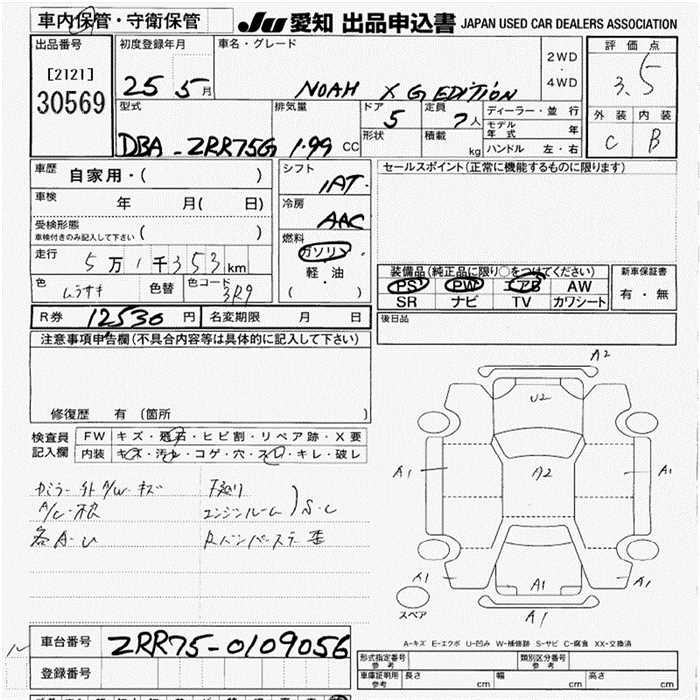 車内保管・守衛保管
JU 愛知 出品申込書 JAPAN USED CAR DEALERS ASSOCIATION
出品番号
[2121]
30569
初度登録年月
25 5月
車名・グレード
NOAH X G EDITION
2WD
・
4WD
評価点
3.5
外装 内装
C B
型式
DBA-ZRR75G
排気量
1.99 CC
ドア
5
形状
定員
7人
積載
kg
ディーラー・並行
モデル年式 年
ハンドル 左・右
車歴
自家用・( )
車検
年 月( 日)
受検形態
車検付きのみ記入して下さい ( )
走行
5万1千353km
色
ムラサキ
色替
色コード
3R9
シフト
IAT
冷房
AAC
燃料
ガソリン
軽・油
( )
セールスポイント(正常に機能するものに限ります)
装備品(純正品に限り○をつけてください)
PS PW エアB AW
SR ナビ TV カワシート
新車保証書
有・無
後日品
R券 12530円
名変期限 月 日
注意事項申告欄(不具合内容等は具体的に記入して下さい)
修復歴 有(箇所 )
検査員
記入欄
FW キズ・飛石・ヒビ割・リペア跡・X要
内装 キズ・汚れ・コゲ・穴・スレ・キレ・破レ
A/C
エンジンルーム S・C
A2
U2
A1
A2
A1
A1
A1
A1
A1
スペア
A-キズ E-エクボ U-凹み W-補修跡 S-サビ C-腐食 XX-交換済
車台番号 ZRR75-0109056
登録番号
形式指定番号
参考
類別区分番号
参考
車庫証明用
参考
長さ cm
幅 cm
高さ cm